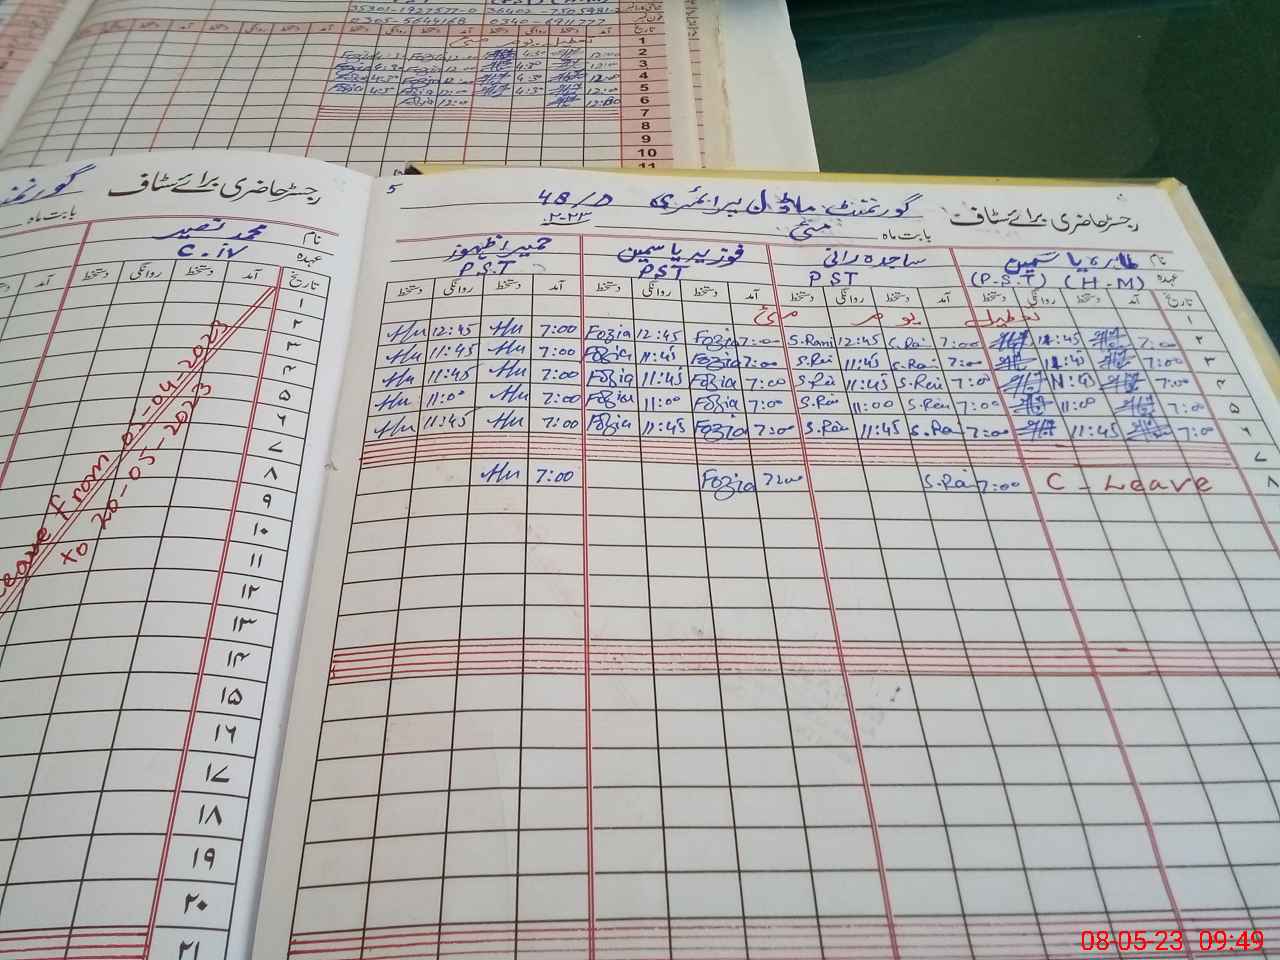 35301-1922577-0 36402-7505981-2
0305-5644168 0340-6911777
تاریخ آمد دستخط روانگی دستخط آمد دستخط روانگی دستخط
1
2 12:00 4:30 Fozia 12:00 Fozia 4:30
3 12:00 4:30 Fozia 12:00 Fozia 4:30
4 12:00 4:30 Fozia 12:00 Fozia 4:30
5 12:00 4:30 Fozia 12:00 Fozia 4:30
6 Fozia 12:00
7
8
9
10
11
رجسٹر حاضری برائے سٹاف گورنمنٹ
بابت ماہ
نام محمد نصیر
عہدہ C.IV
تاریخ آمد دستخط روانگی دستخط
Leave from 05-04-2023
to 20-05-2023
۱
۲
۳
۴
۵
۶
۷
۸
۹
۱۰
۱۱
۱۲
۱۳
۱۴
۱۵
۱۶
۱۷
۱۸
۱۹
۲۰
۲۱
5
رجسٹر حاضری برائے سٹاف گورنمنٹ ماڈل پرائمری 48/D
بابت ماہ مئی ۲۰۲۳
نام طاہرہ یاسمین ساجدہ رانی فوزیہ یاسمین حمیرا ظہور
عہدہ (P.S.T) (H.M) PST PST P.S.T
تاریخ آمد دستخط روانگی دستخط آمد دستخط روانگی دستخط آمد دستخط روانگی دستخط آمد دستخط روانگی دستخط
۱ تعطیل یوم مئی
۲ 7:00 11:45 7:00 S.Rani 12:45 S.Rani 7:00 Fozia 12:45 Fozia 7:00 Hu 12:45 Hu
۳ 7:00 11:45 7:00 S.Rani 11:45 S.Rani 7:00 Fozia 11:45 Fozia 7:00 Hu 11:45 Hu
۴ 7:00 11:45 7:00 S.Rani 11:45 S.Rani 7:00 Fozia 11:45 Fozia 7:00 Hu 11:45 Hu
۵ 7:00 11:00 7:00 S.Rani 11:00 S.Rani 7:00 Fozia 11:00 Fozia 7:00 Hu 11:00 Hu
۶ 7:00 11:45 7:00 S.Rani 11:45 S.Rani 7:00 Fozia 11:45 Fozia 7:00 Hu 11:45 Hu
۷
۸ C - Leave 7:00 S.Rani 7:00 Fozia 7:00 Hu
08-05-23 09:49